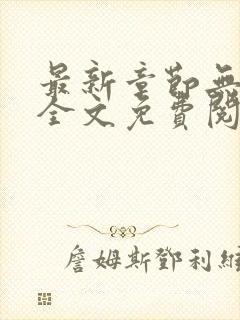 最新章節無
全文免費閱
詹姆斯鄧利維